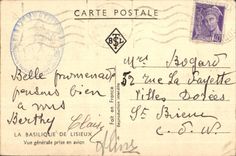 CARTE POSTALE
Belle promenade
pensons bien
à vous
Berthy
LA BASILIQUE DE LISIEUX
Vue générale prise en avion
Fait en France
Mrs Bogard
52 rue La Fayette
Villes Dorées
St Brieuc
C.D.N